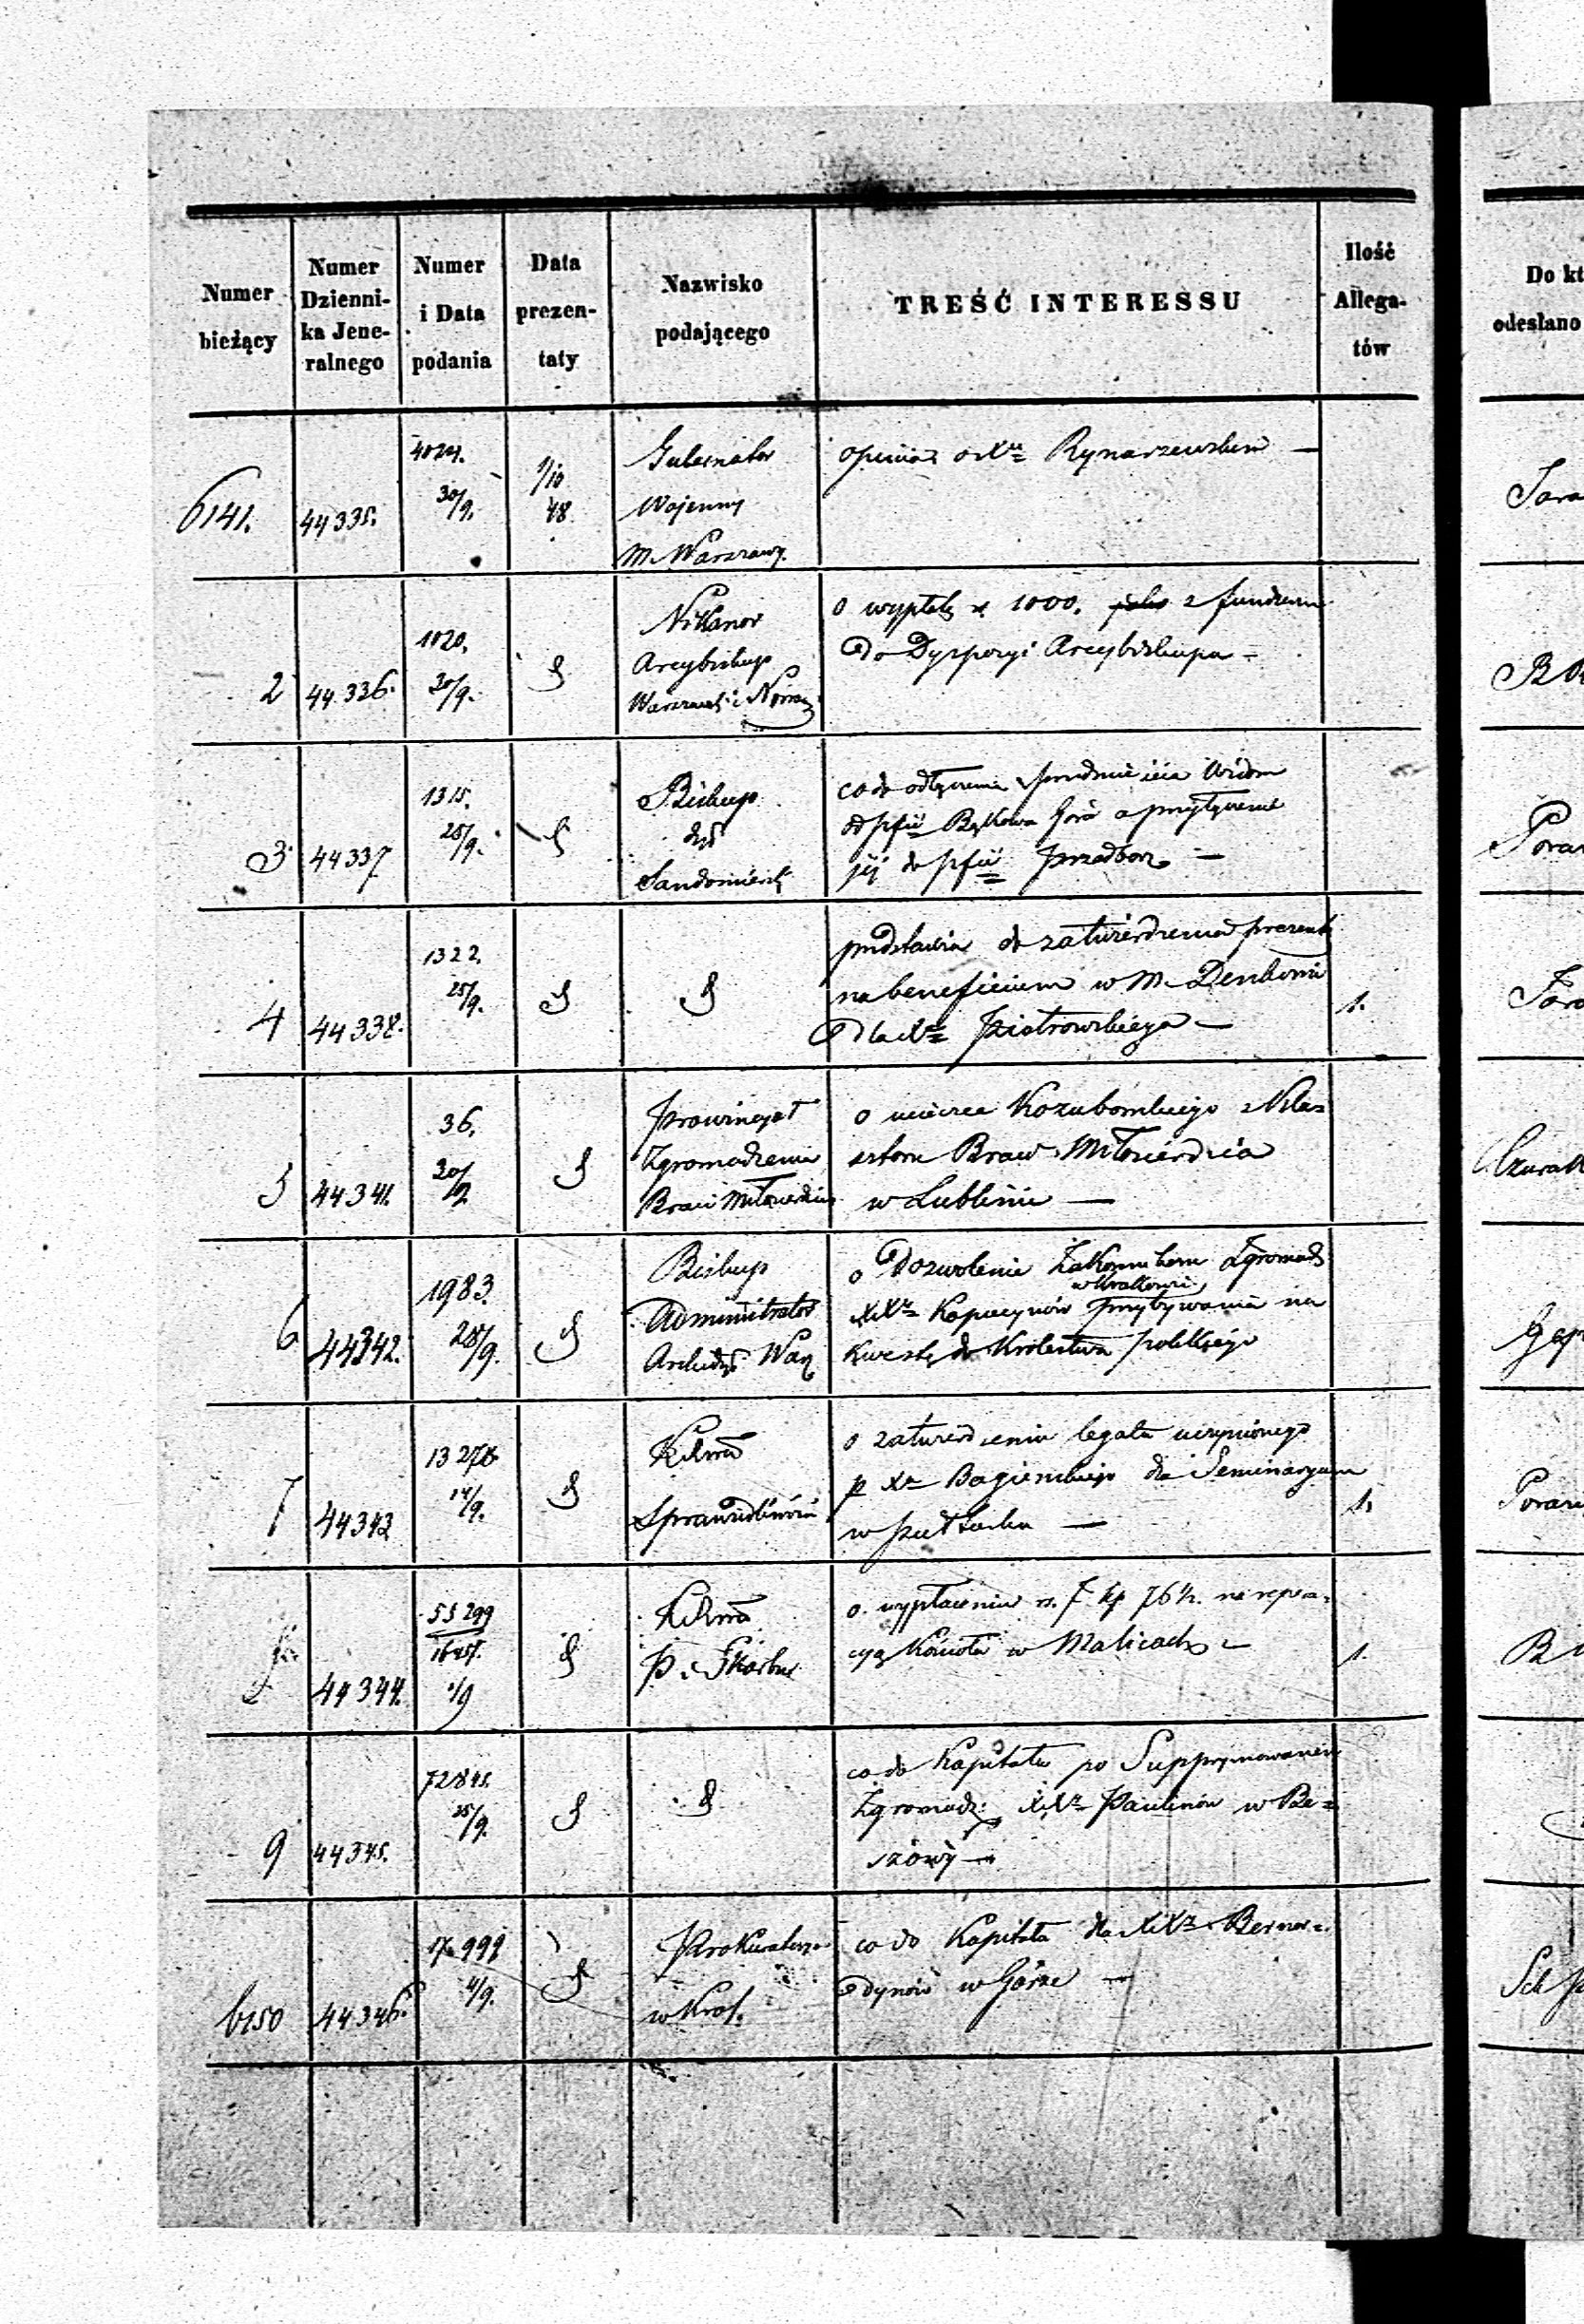 Numer bieżący
Numer Dzienni-ka Jene-ralnego
Numer i Data podania
Data prezen-taty
Nazwisko podającego
TREŚĆ INTERESSU
Ilość Allega-tów
Do kt
odesłano
6141. 44335. 4024. 30/9. 1/10 48
Gubernator
Wojenny
M. Warszawy.
opinia o Xu Rynarzewskim —
2 44336. 1020. 30/9. §
Nikanor
Arcybiskup
Warszaws: i
o wypłatę 1000. z funduszu
do Dyspozycyi Arcybiskupa —
3 44337 1315. 25/9. §
Biskup
dyś
Sandomiersk
co do odłączenia
od pfii Bąkowa Góra a przyłączenie
jéj do pfii Przedborz —
4 44338. 1322. 25/9. § §
przedstawia do zatwierdzenia prezentę
na beneficium w M. Denkowie
dla Xa Piotrowskiego — 1.
5 44341. 36. 30/9 §
Prowincyał
Zgromadzenia
Braci Miłosierdzia
o ucieczce z Klasz
sztoru Braci Miłosierdzia
w Lublinie —
6 44342. 1983. 28/9. §
Biskup
Administrator
Archidyś War
o dozwolenie Zakonnikom Zgromadz
w Krakowie
XXy Kapucynów przybywania na
kwestę do Królestwa Polskiego
7 44343 14/9. §
KRSprawiedliwości
o zatwierdzenie legatu uczynionego
p Xa dla Seminaryum
w Pułtusku — 1.
44344. 55299 1/9 §
KR
P. i Skarbu
o wypłacenie rs. 7 kp 76½. na repera-
cyą Kościoła w Malicach — 1.
9 44345. 72845. 25/9. § §
co do Kapitału po Supprymowanem
Zgromadz: XXy Paulinów w Be-
szowy —
6150 44346. 999 4/9. §
Prokuratorya
w Król.
co do Kapitału dla XXy Bernar-
dynów w Górze —